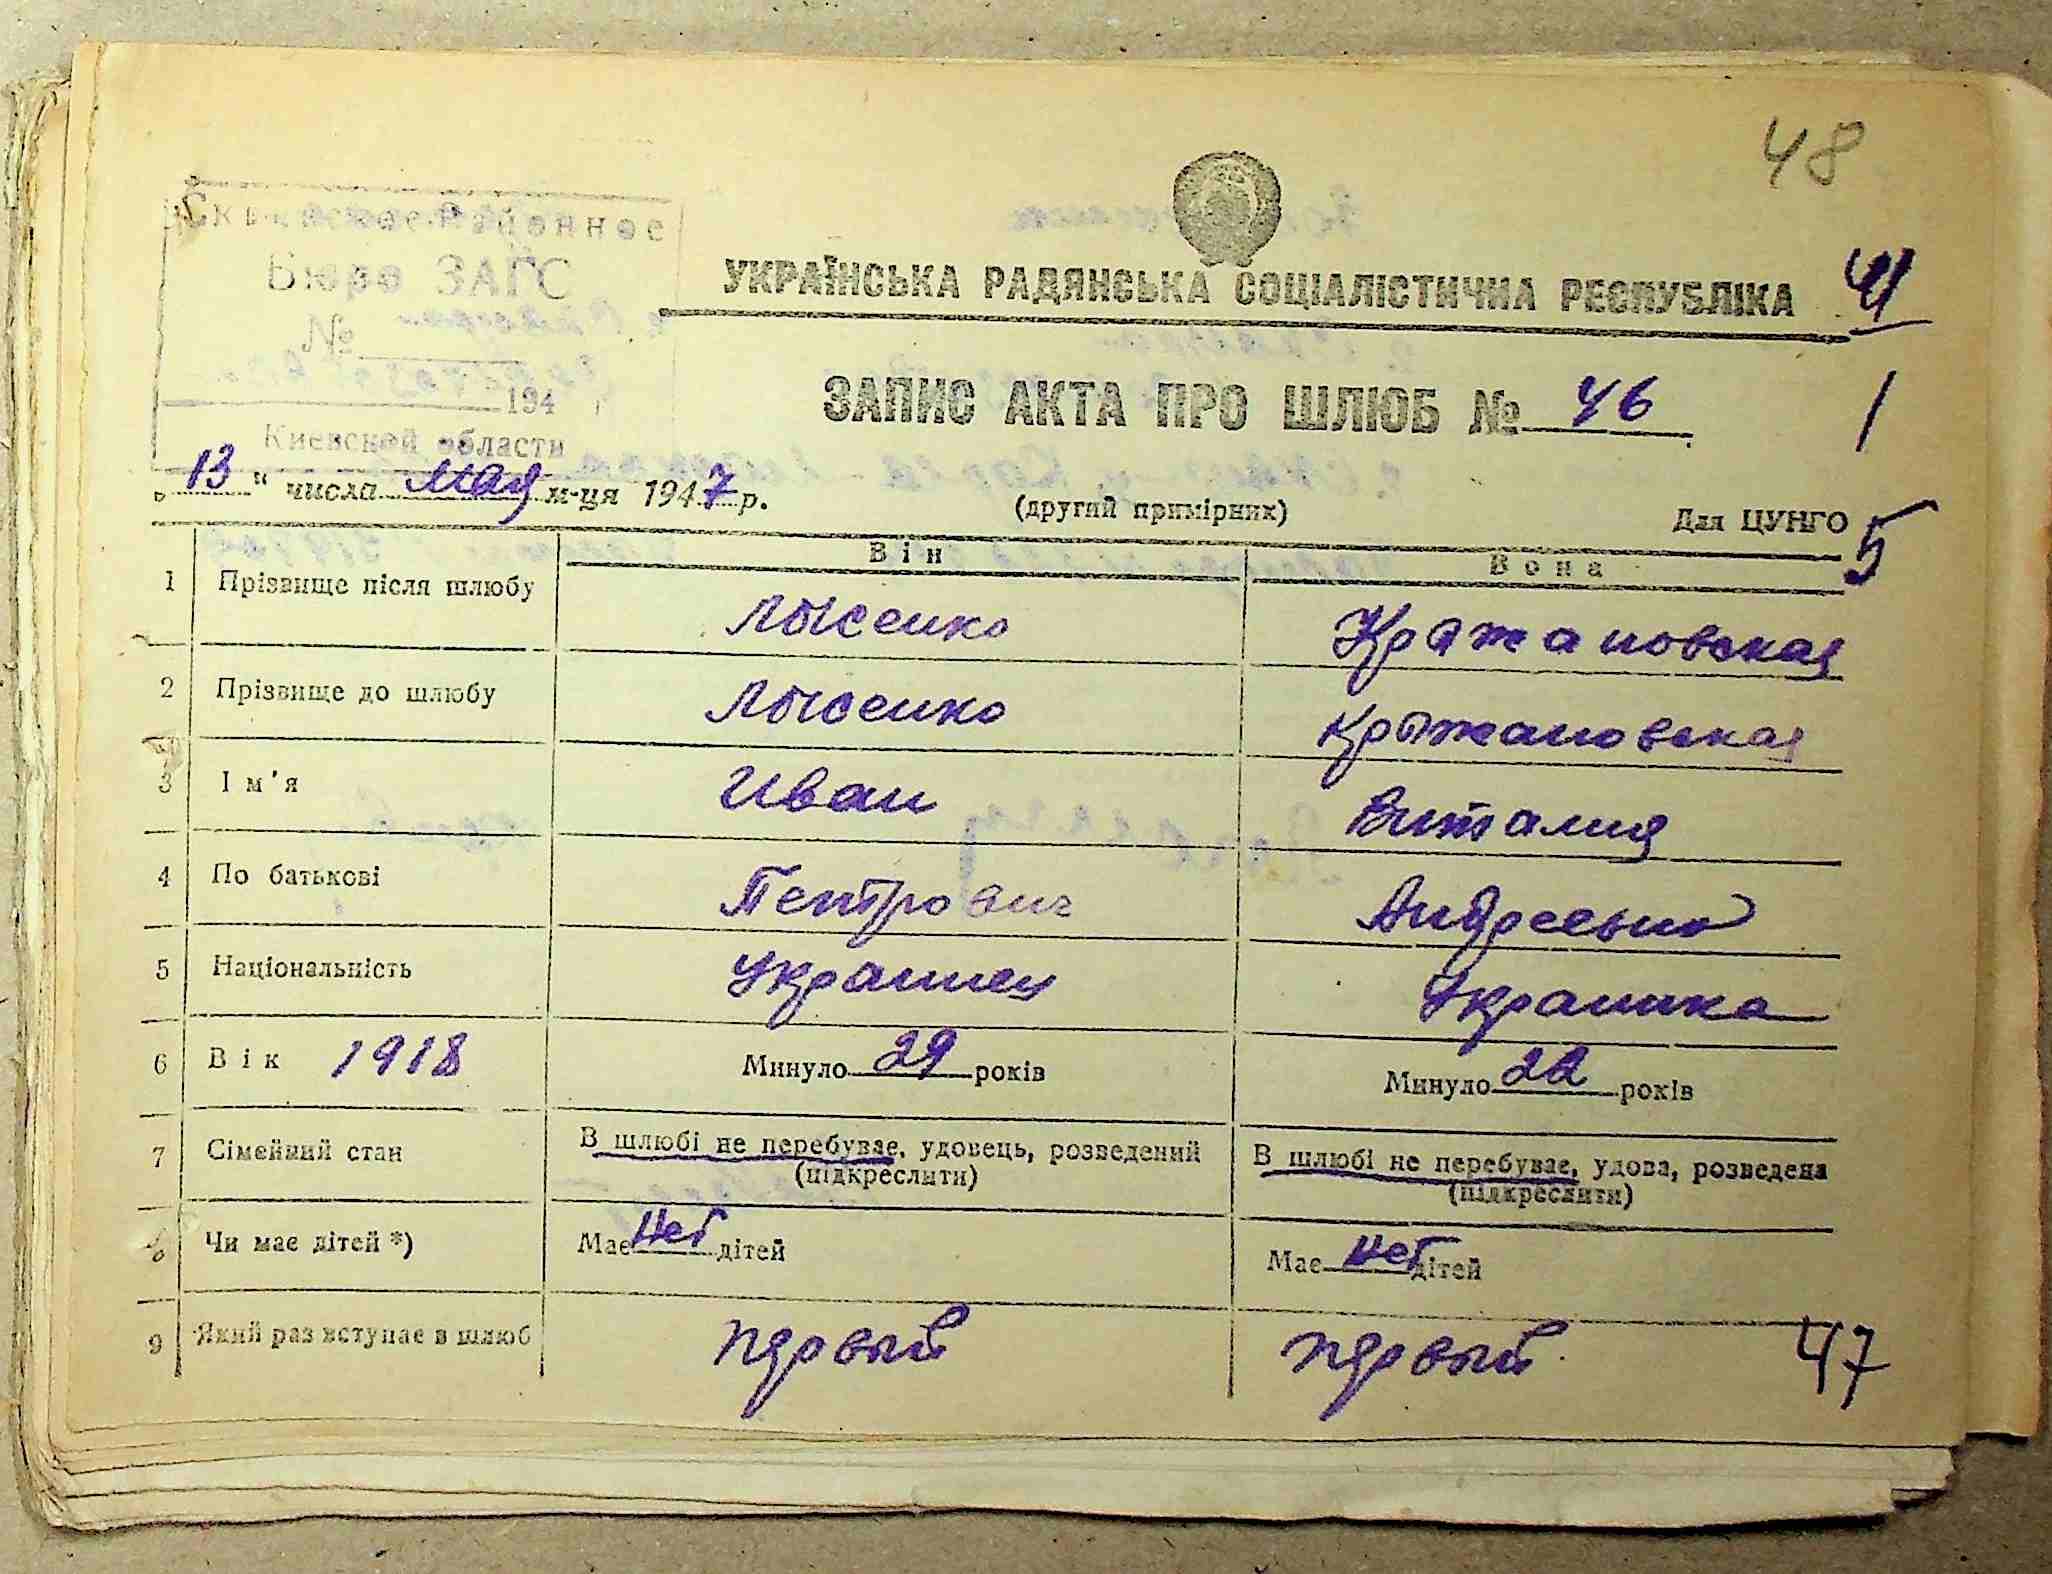 48
Сквирское Районное
Бюро ЗАГС
№
194
Киевской области
УКРАЇНСЬКА РАДЯНСЬКА СОЦІАЛІСТИЧНА РЕСПУБЛІКА
ЗАПИС АКТА ПРО ШЛЮБ № 46
1
„13“ числа мая м-ця 1947 р.
(другий примірник)
Для ЦУНГО
5
Він Вона
1 Прізвище після шлюбу Лысенко Крыжановская
2 Прізвище до шлюбу Лысенко Крыжановская
3 Ім'я Иван Виталия
4 По батькові Петрович Андреевно
5 Національність Украинец Украинка
6 Вік 1918 Минуло 29 років Минуло 22 років
7 Сімейний стан В шлюбі не перебуває, удовець, розведений В шлюбі не перебуває, удова, розведена
(підкреслити) (підкреслити)
8 Чи має дітей *) Має нет дітей Має нет дітей
9 Який раз вступає в шлюб первый первый
47